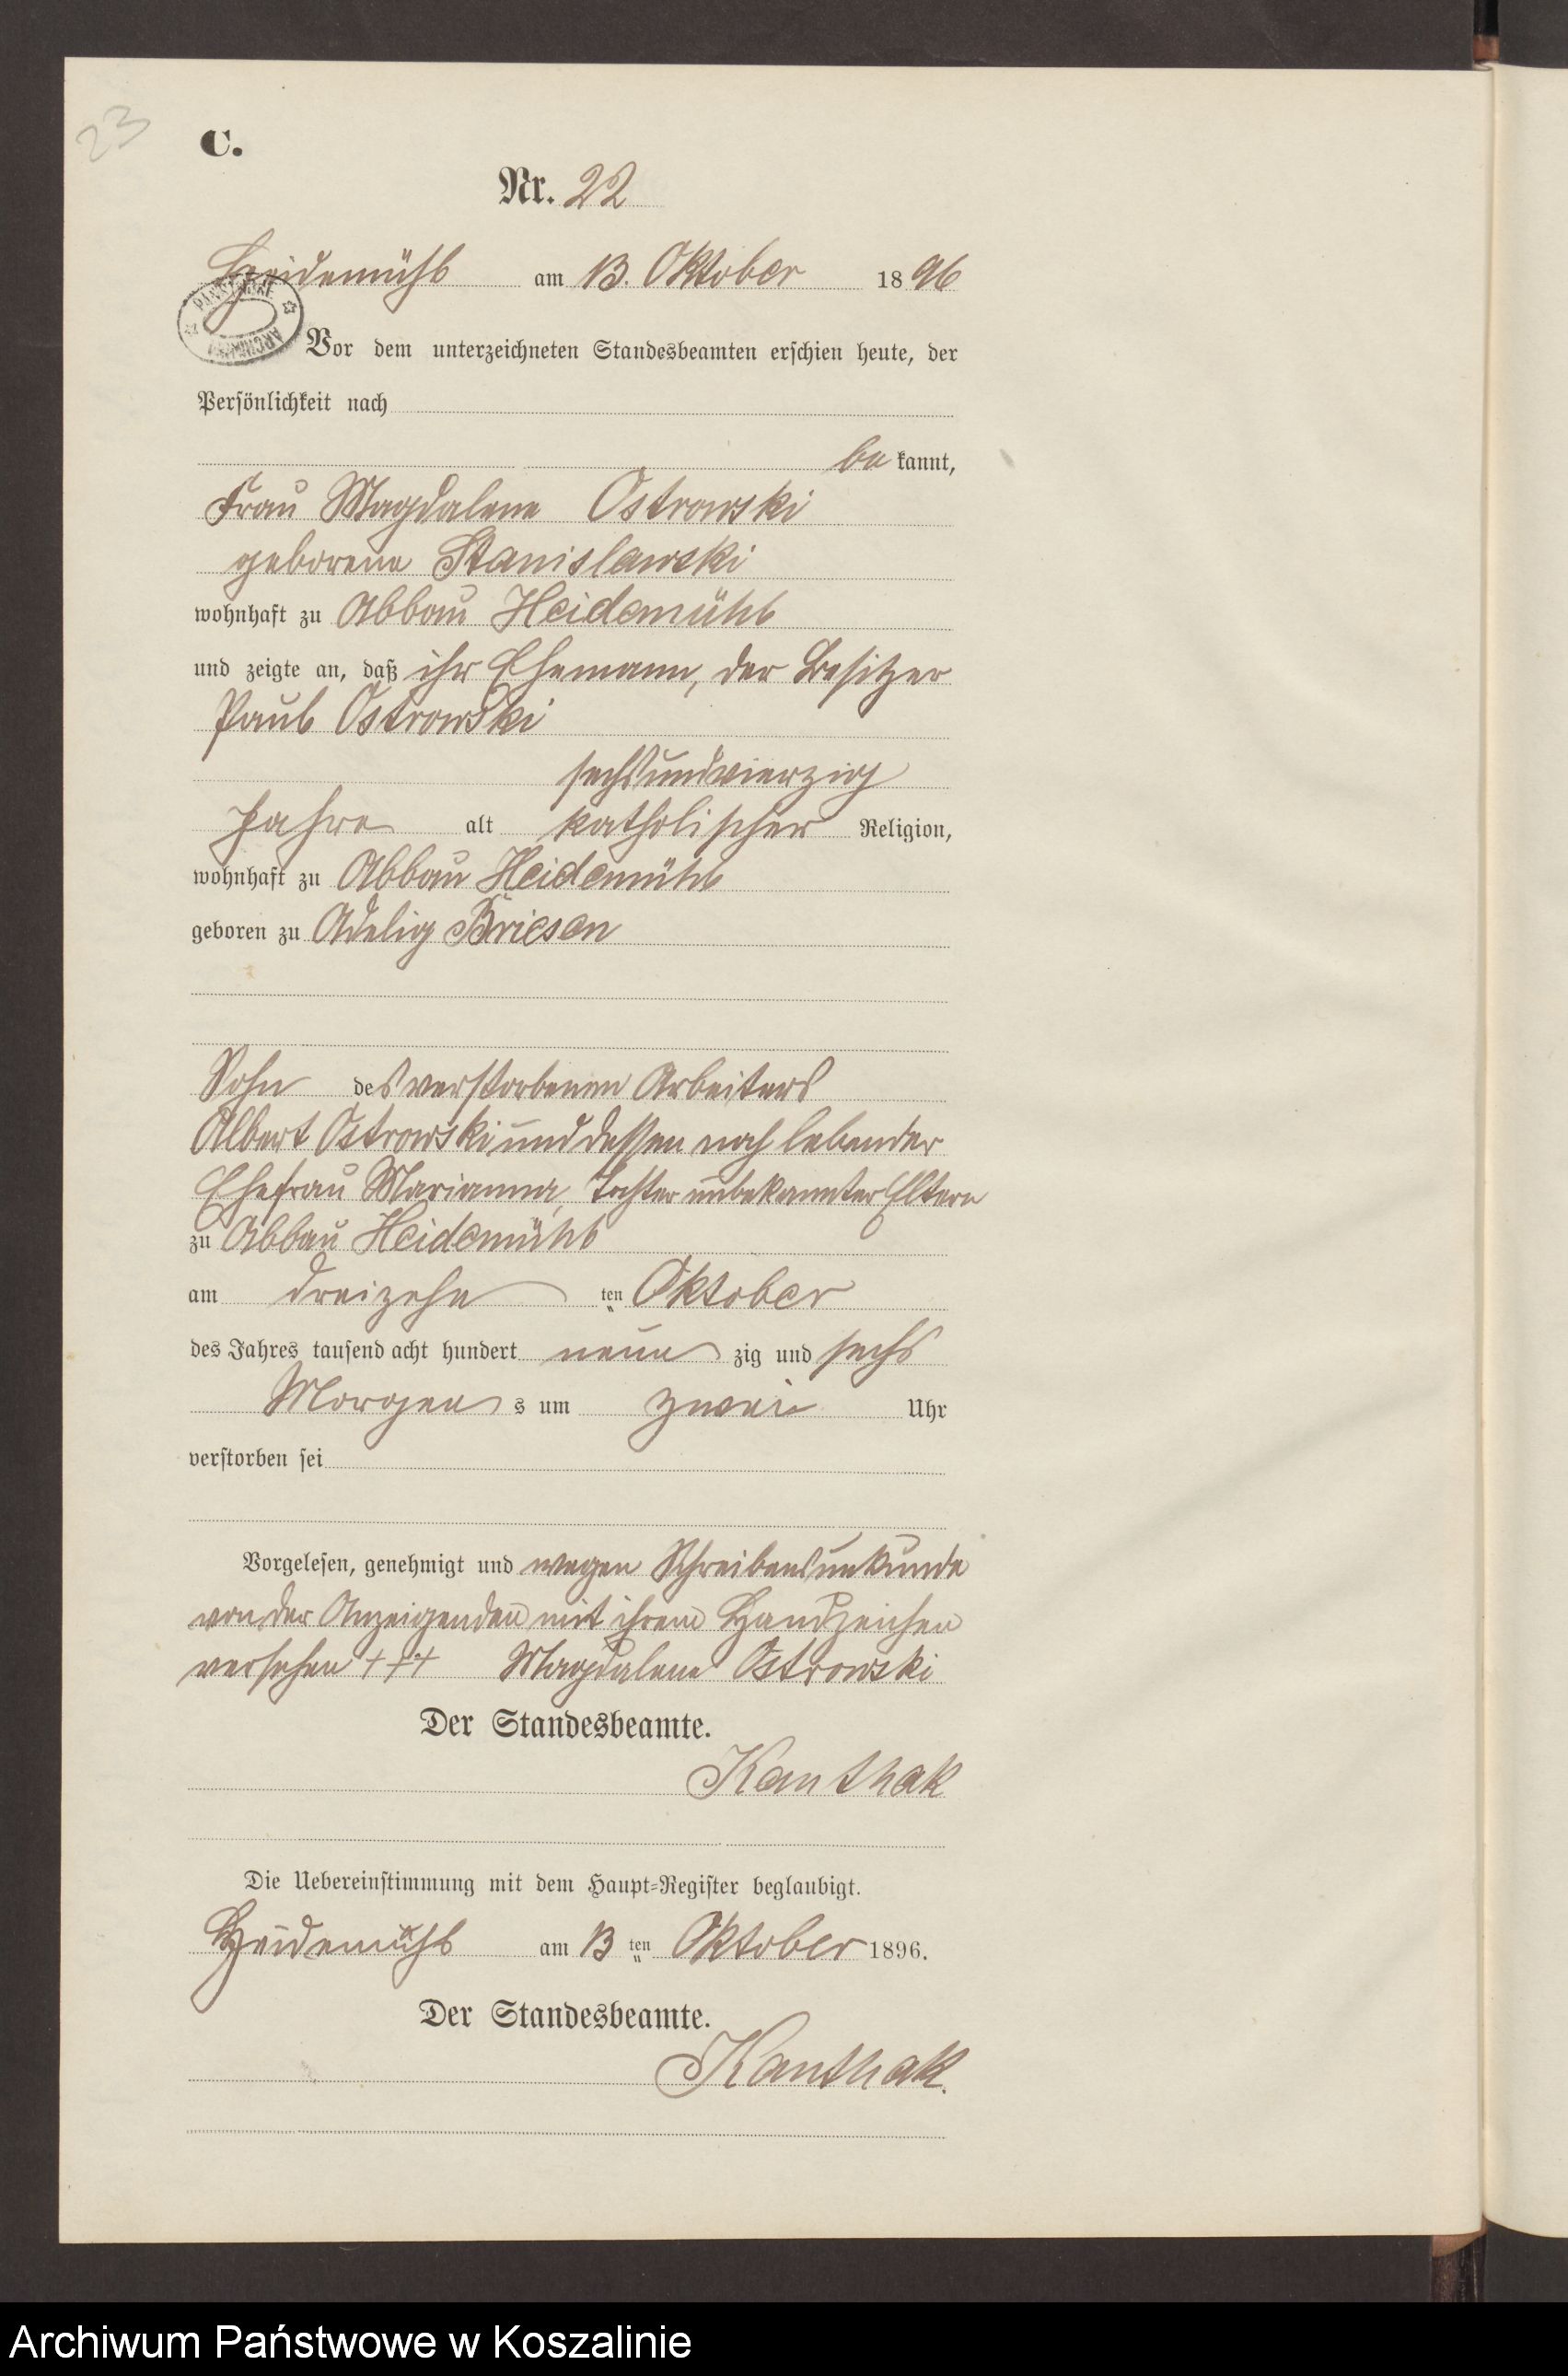 23
C.
Nr. 22
Heidemühl am 13. Oktober 1896
Vor dem unterzeichneten Standesbeamten erschien heute, der
Persönlichkeit nach
bekannt,
Frau Magdalena Ostrowski
geborene Stanislawski
wohnhaft zu Abbau Heidemühl
und zeigte an, daß ihr Ehemann, der Besitzer
Paul Ostrowski
sechsundvierzig
Jahre alt katholischer Religion,
wohnhaft zu Abbau Heidemühl
geboren zu Adelig Briesen
Sohn des verstorbenen Arbeiters
Albert Ostrowski und dessen noch lebender
Ehefrau Marianna, Tochter unbekannter Eltern
zu Abbau Heidemühl
am dreizehnten Oktober
des Jahres tausend acht hundert neunzig und sechs
Morgens um zwei Uhr
verstorben sei
Vorgelesen, genehmigt und wegen Schreibensunkunde
von der Anzeigenden mit ihrem Handzeichen
versehen +++ Magdalena Ostrowski
Der Standesbeamte.
Kanthak
Die Uebereinstimmung mit dem Haupt-Register beglaubigt.
Heidemühl am 13ten Oktober 1896.
Der Standesbeamte.
Kanthak.
Archiwum Państwowe w Koszalinie